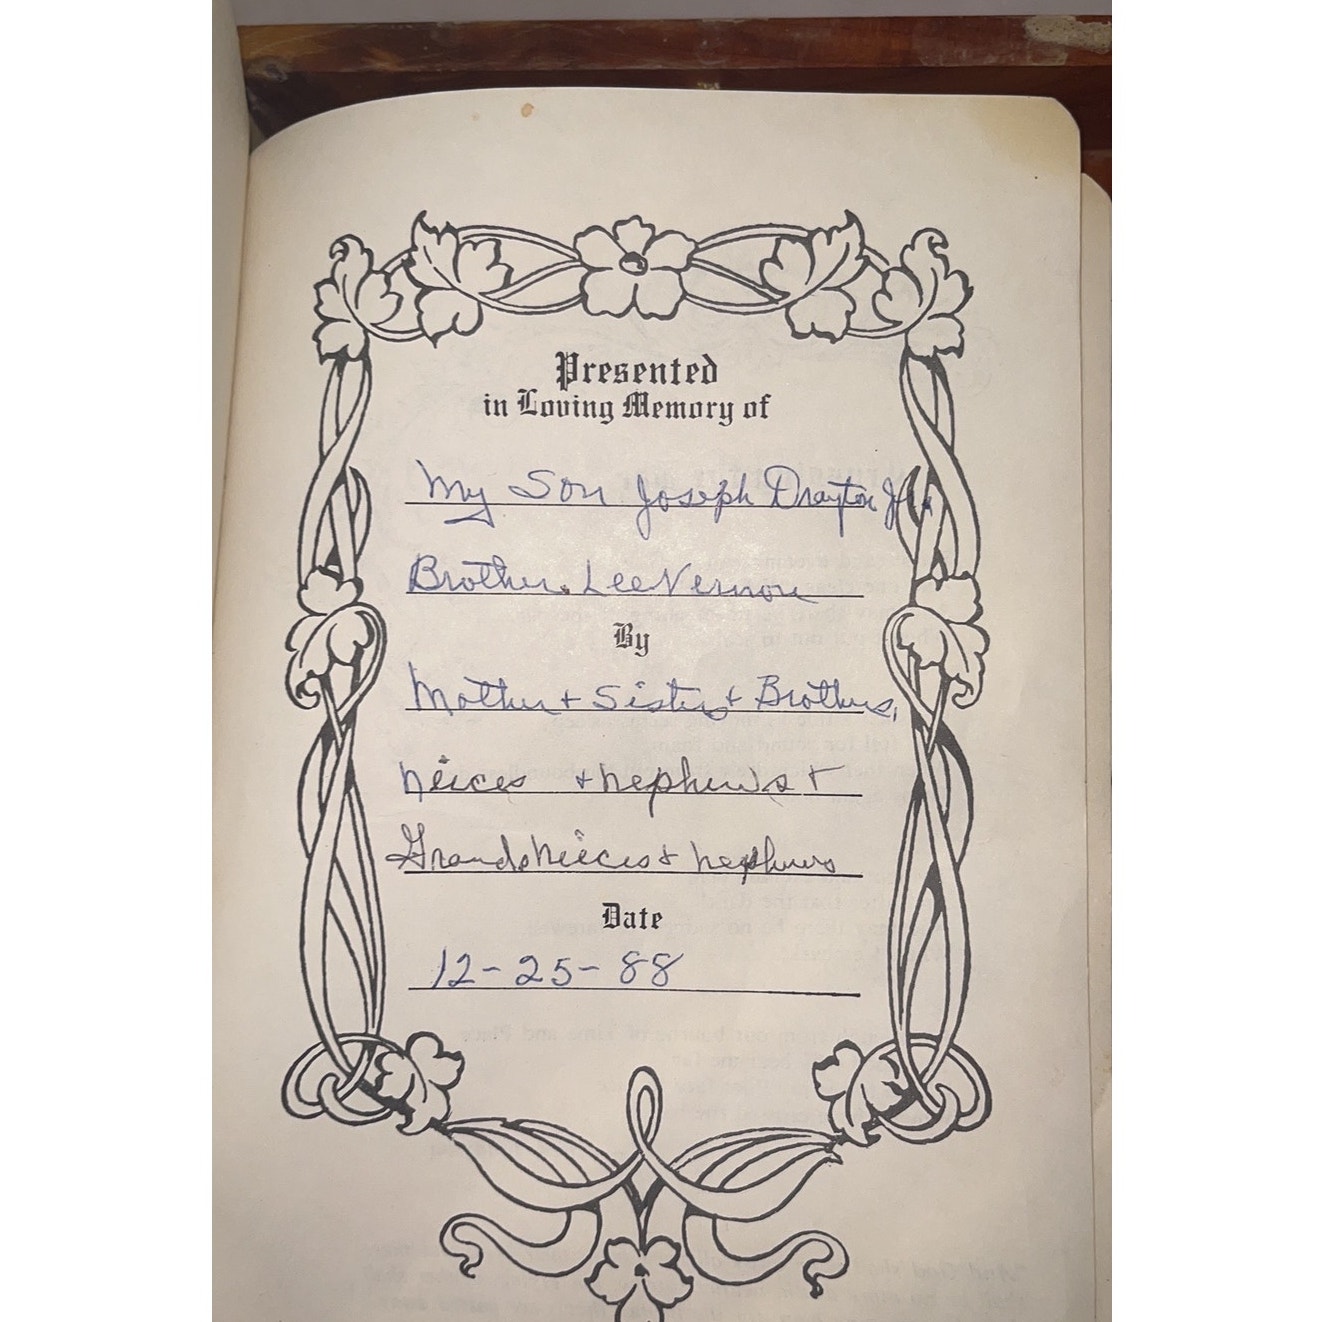 Presented
in Loving Memory of
My Son Joseph Drayton Jr.
Brother. Lee Vernon
By
Mother + Sisters + Brothers,
neices + nephews +
Grands neices + nephews
Date
12-25-88